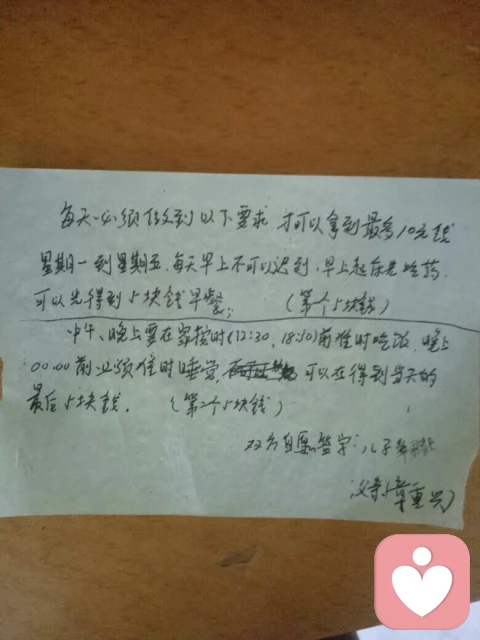 每天必须做到以下要求 才可以拿到最多10元钱
星期一到星期五.每天早上不可以迟到.早上起床先吃药.
可以先得到5块钱早餐; (第一个5块钱)
中午、晚上要在家按时(12:30、18:30)前准时吃饭.晚上
00:00前必须准时睡觉, 可以在得到当天的
最后5块钱. (第二个5块钱)
双方自愿签字:儿子
父亲(章重兴)